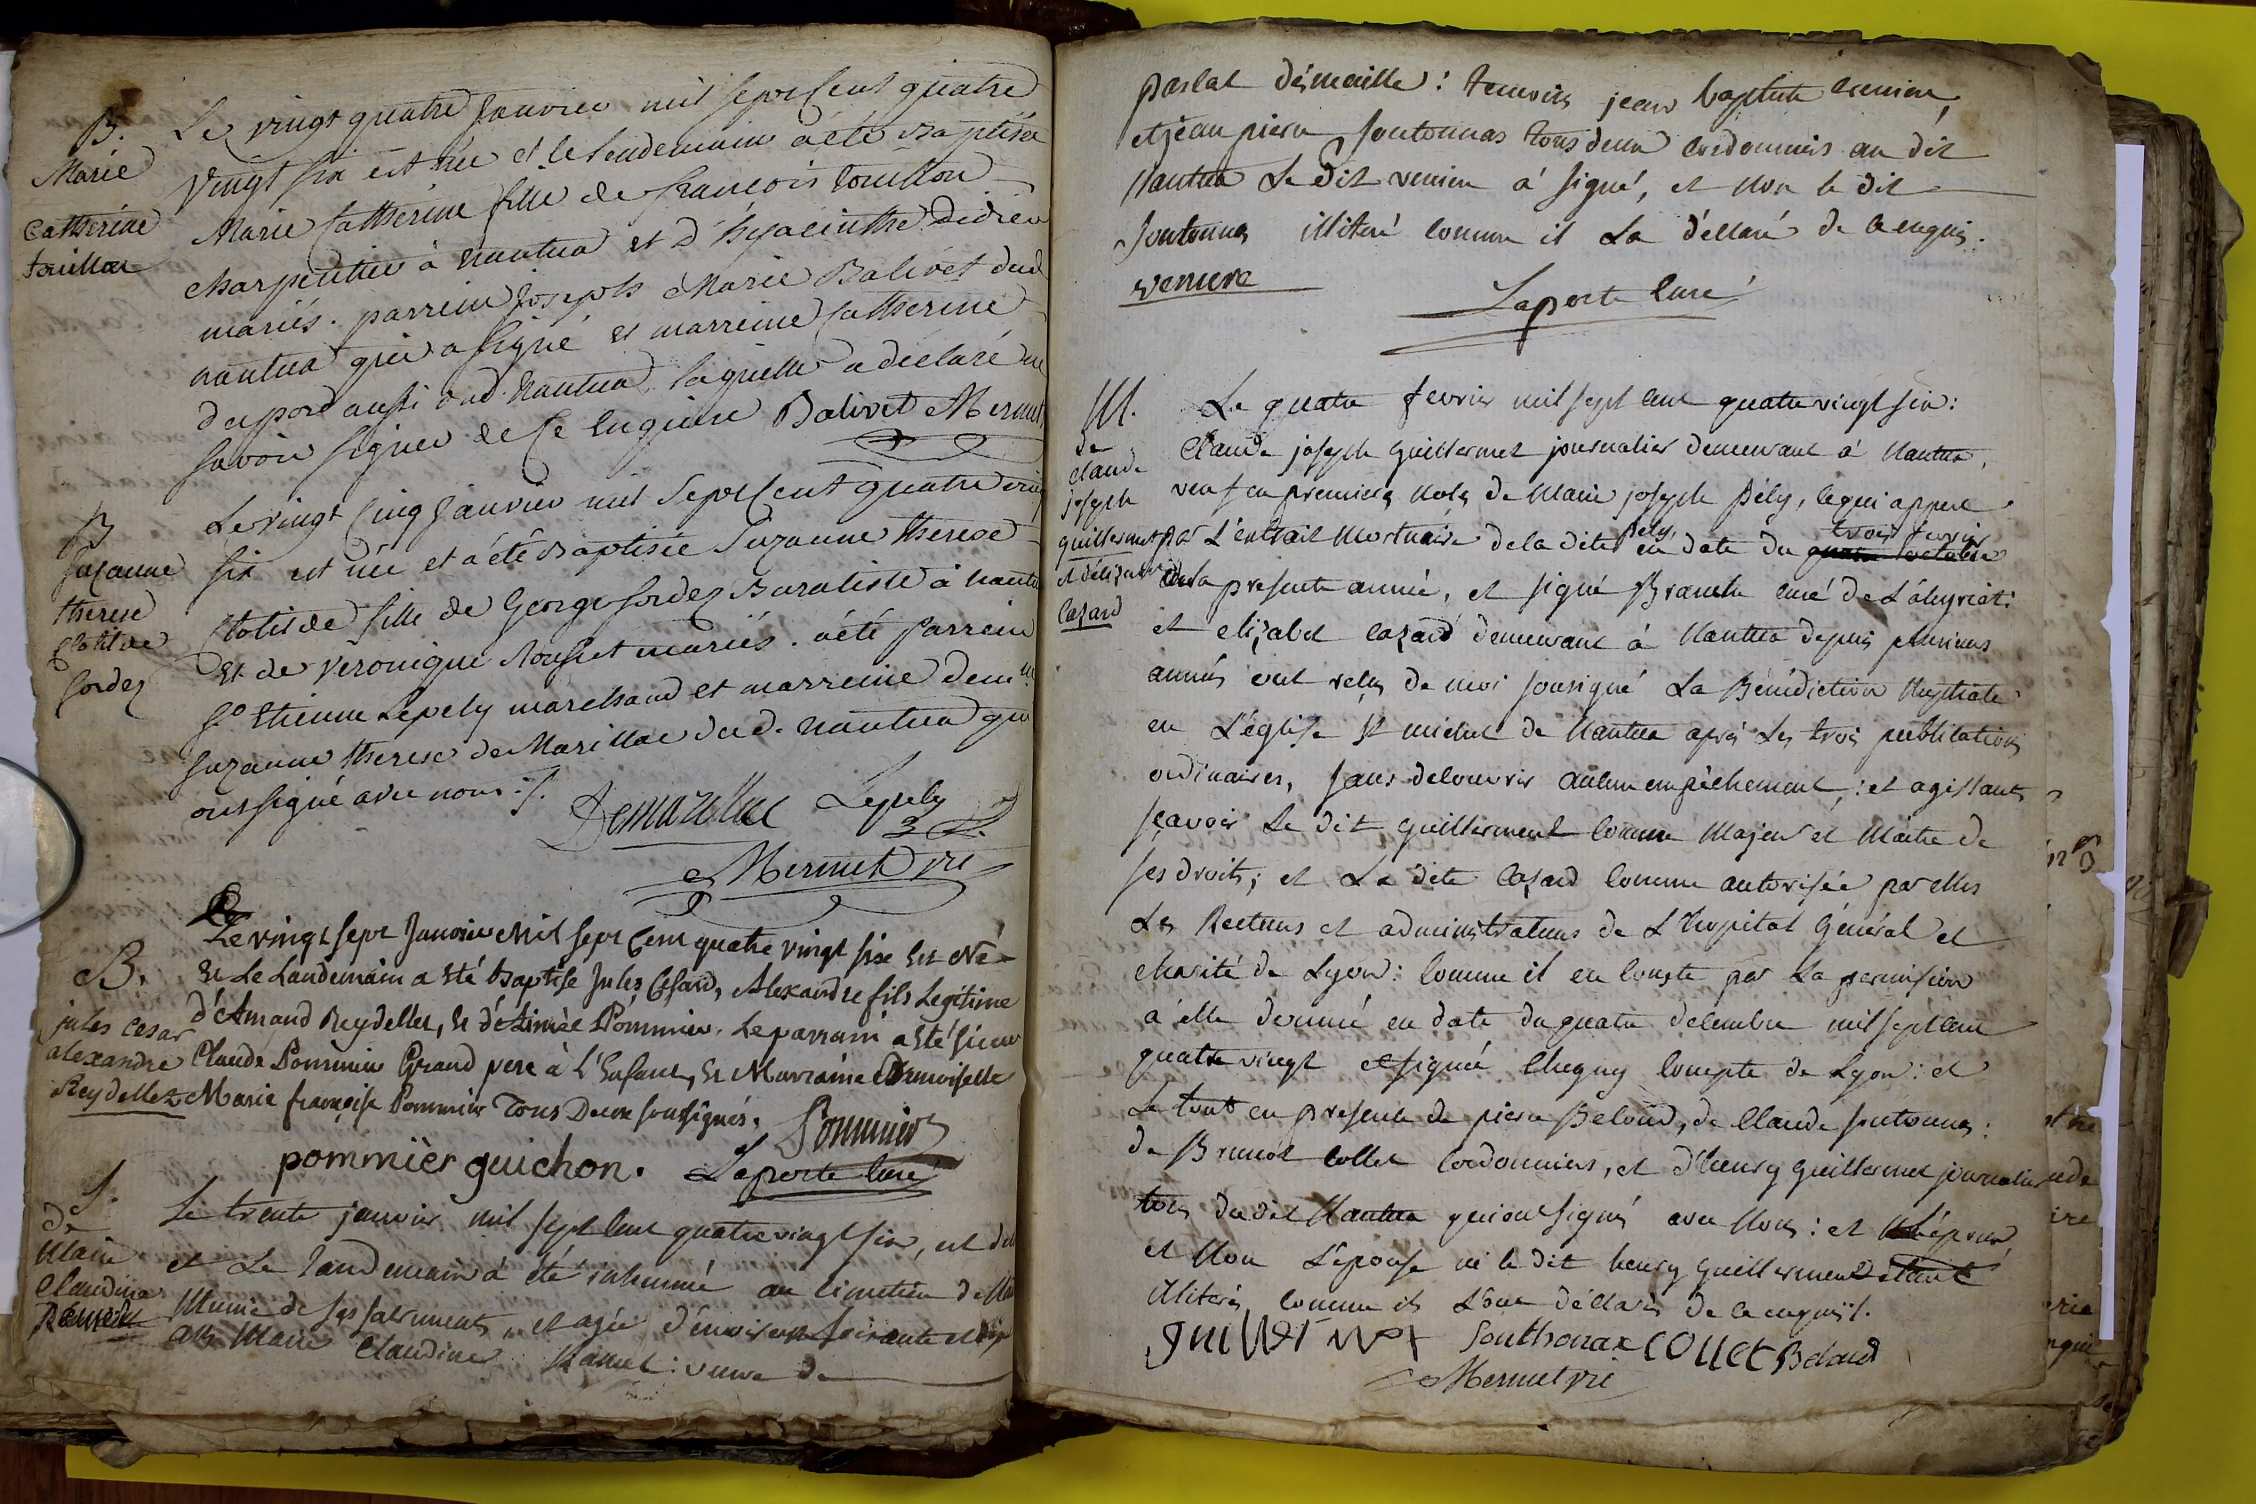 B.
Marie
Catherine
touillon
Le vingt quatre Janvier mil sept cent quatre
vingt six est née et le lendemain a été Baptisée
Marie Catherine fille de françois touillon
charpentier à nantua et d'hyacinthe Didier
mariés. parrein Joseph Marie Balivet dud
nantua qui a signé et marreine Catherine
duport aussi dud. nantua laquelle a déclaré ne
savoir signer de ce Enquise Balivet Mermet
B
suzanne
therese
Clotilde
Le vingt cinq Janvier mil sept cent quatre vingt
six est née et a été Baptisée Suzanne therese
Clotilde fille de George Buraliste à nantua
et de veronique mariés. a été parrein
sr Etienne Lepely marchand et marreine demlle
suzanne therese de Marillac dud. nantua qui
ont signé avec nous ./.
Demarillac Lepely
Mermet vic
B.
jules Cesar
alexandre
Reydellet
Le vingt sept Janvier Mil sept Cent quatre vingt six Est Né
Et Le Landemain a Eté baptisé Jules Cesard, Alexandre fils Legitime
d'Amand Reydellet, Et d'Aimée Pommier. Le parrain a Eté sieur
Claude Pommier Grand pere à l'Enfant, Et Marraine Demoiselle
Marie françoise Pommier Tous Deux soussignés.
Pommier
pommièr guichon. Laporte Curé
S.
de
Marie
Claudine
Ramel
Le trente janvier mil sept cent quatre vingt six, est
et Le Landemain a été inhumée au cimetiere de
Munie de ses sacrements, et agée d'environ soixante et dix
ans Marie Claudine Ramel: veuve de
pascal temoins jean baptiste
et jean pierre soutonnas tous deux cordonniers au dit
Nantua Le Dit a signé, et Non le dit
soutonnas illiteré comme il La déclaré de ce enquis.
Laporte Curé
M.
de
Claude
joseph
guillermet
et d'élizabet
Cazard
Le quatre fevrier mil sept cent quatre vingt six:
Claude joseph guillermet journalier demeurant à Nantua,
veuf en premieres Noces de Marie joseph Pély, ce qui appert
par L'extrait Mortuaire de la dite Pely, en date du trois fevrier
de la presente année, et signé curé de
et elizabet cazard demeurant à Nantua depuis plusieurs
années ont reçus de moi soussigné La Bénédiction Nuptiale
en L'église St michel de Nantua après Les trois publications
ordinaires, sans decouvrir aucun empêchement; et agissants
sçavoir Le dit guillerment comme Majeur et Maitre de
ses droits; et La dite Cazard comme autorisée par Mrs
Les Recteurs et administrateurs de L'hopital Général et
charité de Lyon: comme il en conste par La permission
à elle donnée en date du quatre decembre mil sept cent
quatre vingt et signée compte de Lyon: et
Le tout en presence de pierre Belond, de Claude soutonnas:
de Brunot Collet Cordonniers, et d'henry guillermet journalier
tous du dit Nantua qui ont signés avec Nous: et
et Non L'épouse ni le dit henry guillerment
illiterés, comme ils L'ont déclarés de ce enquis ./.
guillermet Southonax COLLET Belond
Mermet vic